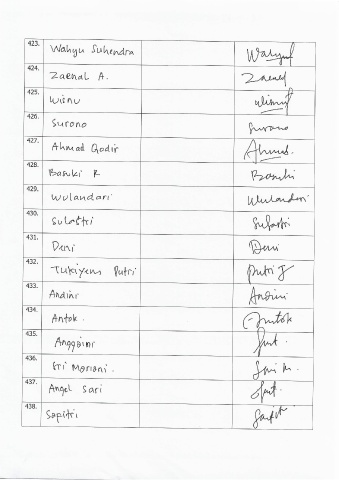 423. Wahyu Suhendra Wahyu
424. Zaenal A. Zaenal
425. Wisnu Wisnu
426. Surono Surono
427. Ahmad Qodir Ahmad.
428. Basuki R Basuki
429. Wulandari Wulandari
430. Sulastri Sulastri
431. Deni Deni
432. Tukiyem Putri Putri
433. Andini Andini
434. Antok. Antok
435. Anggoini
436. Sri Mariani. Sri M.
437. Angel Sari
438. Sapitri